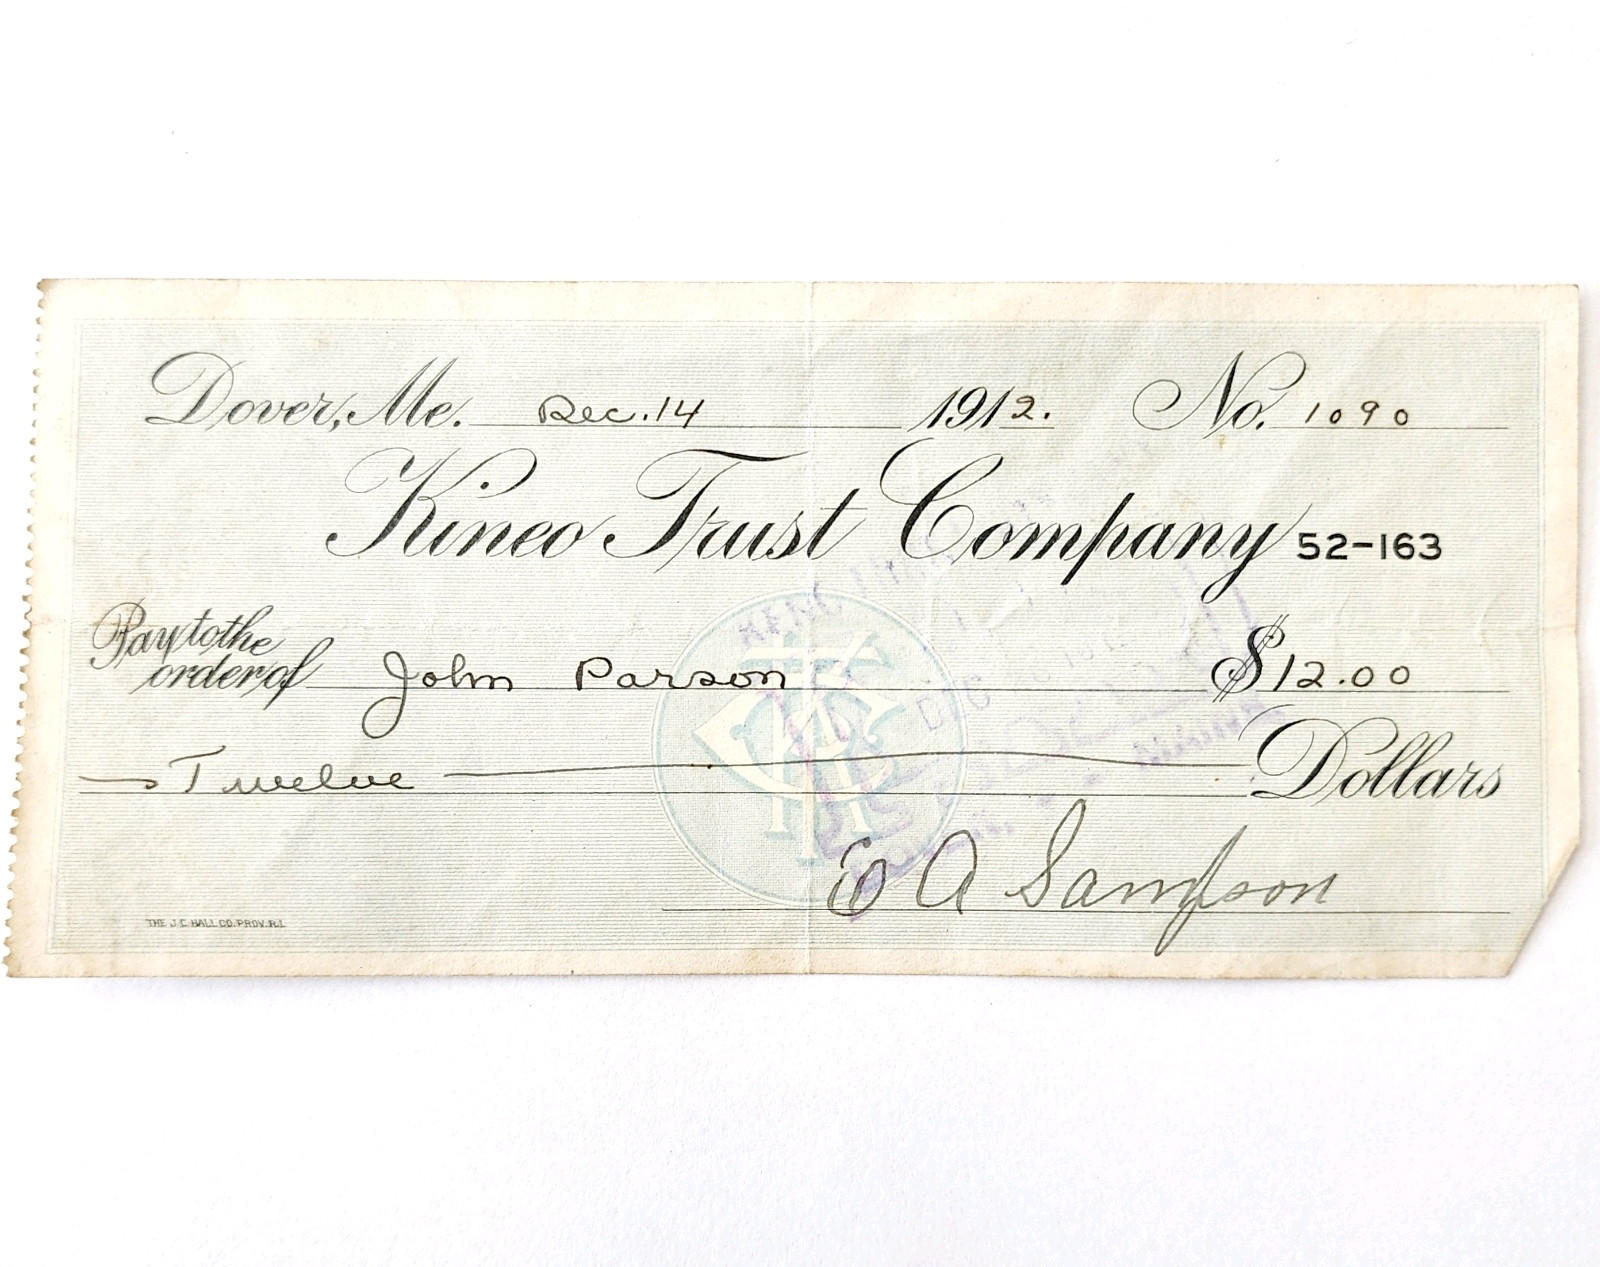 Dover, Me. Dec. 14 1912. No. 1090
Kineo Trust Company 52-163
Pay to the
order of John Parson $12.00
Twelve Dollars
E A Sampson
THE J.C. HALL CO. PROV. R.I.